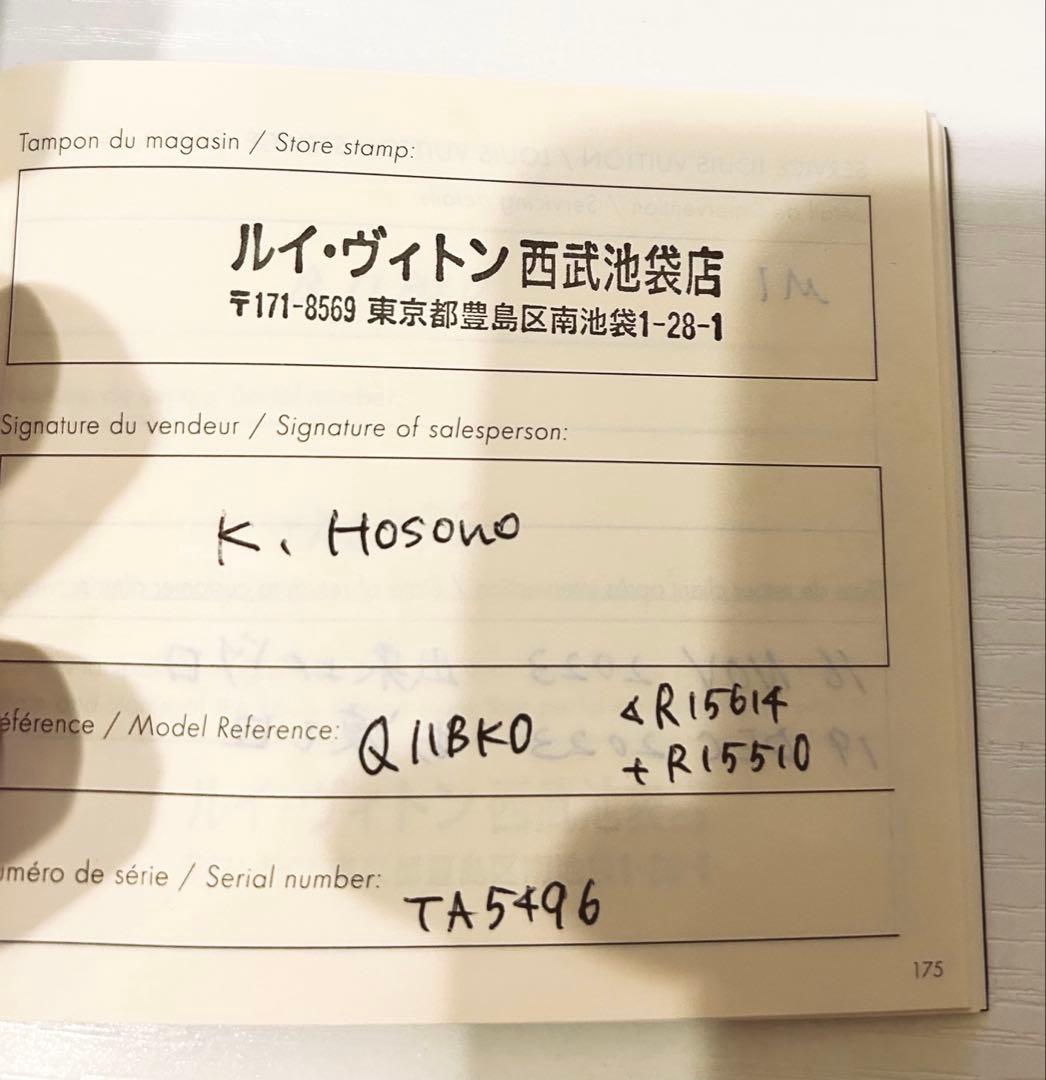 Tampon du magasin / Store stamp:
ルイ・ヴィトン 西武池袋店
〒171-8569 東京都豊島区南池袋1-28-1
Signature du vendeur / Signature of salesperson:
K. Hosono
éférence / Model Reference: Q11BK0
R15614
+ R15510
uméro de série / Serial number:
TA5496
175